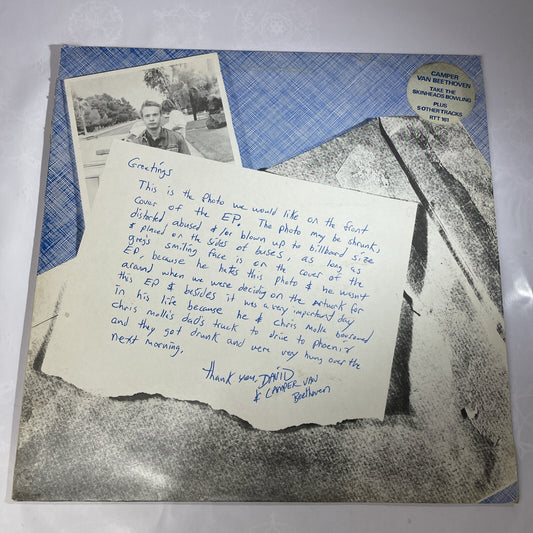 CAMPER
VAN BEETHOVEN
TAKE THE
SKINHEADS BOWLING
PLUS
5 OTHER TRACKS
RTT 161
Greetings
This is the Photo we would like on the front
cover of the EP. The photo may be shrunk,
distorted abused &/or blown up to billboard size
& placed on the sides of buses, as long as
greg's smiling face is on the cover of the
EP, because he hates this photo & he wasn't
around when we were deciding on the artwork for
this EP & besides it was a very important day
in his life because he & chris molla borrowed
chris molla's dad's truck to drive to phoenix
and they got drunk and were very hung over the
next morning.
thank you, DAVID
& CAMPER VAN
Beethoven